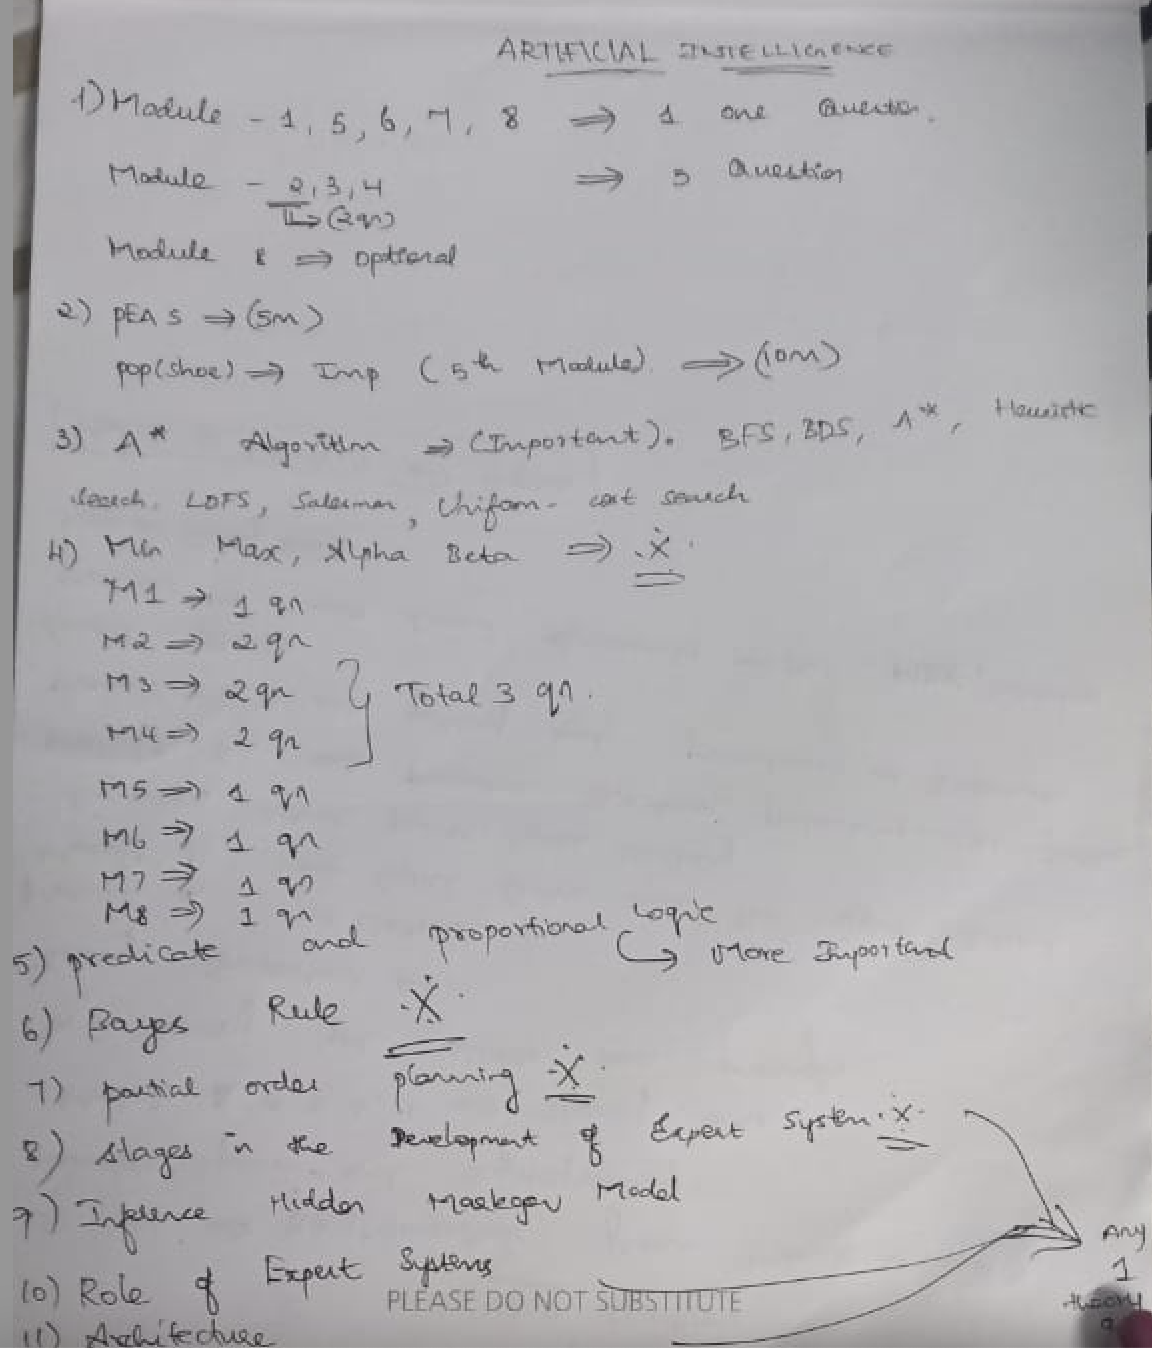 ARTIFICIAL INTELLIGENCE
1) Module - 1, 5, 6, 7, 8 ⇒ 1 one Question.
Module - 2, 3, 4 ⇒ 3 Question
↳ (2qn)
Module 8 ⇒ optional
2) PEAS → (5m)
pop(shoe) ⇒ Imp (5th Module) ⇒ (10m)
3) A* Algorithm ⇒ (Important). BFS, BDS, A*, Heuristic
Search, LDFS, Salesman, Uniform-cost search
4) Min Max, Alpha Beta ⇒ .X.
M1 → 1 qn
M2 ⇒ 2 qn
M3 ⇒ 2 qn } Total 3 qn.
M4 ⇒ 2 qn
M5 ⇒ 1 qn
M6 ⇒ 1 qn
M7 ⇒ 1 qn
M8 ⇒ 1 qn
5) predicate and proportional Logic
↳ More Important
6) Bayes Rule .X.
7) partial order planning .X.
8) stages in the Development of Expert System .X.
9) Inference Hidden Markov Model
10) Role of Expert Systems
Any
1
theory
11) Architecture
PLEASE DO NOT SUBSTITUTE